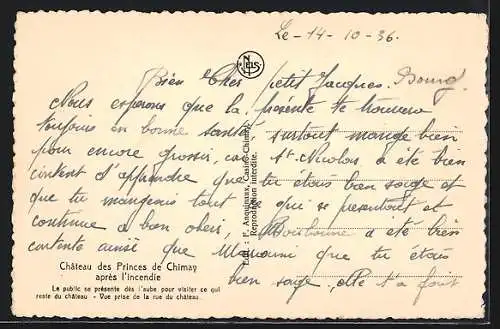 Le - 14 - 10 - 36.
Bien Cher petit Jacques.
Nous esperons que la présente te trouvera
toujours en bonne santé, surtout mange bien
pour encore grossir, car St. Nicolas a été bien
content d'apprendre que tu étais bien sage et
que tu mangeais tout ce qui se présentait et
continue a bon obéir, a été bien
contente aussi que Mamani que tu étais
bien sage, elle t'a fait
NELS
Edit. : F. Anquinaux, Casino-Chimay
Reproduction interdite.
Château des Princes de Chimay
après l'incendie
Le public se présente dès l'aube pour visiter ce qui
reste du château - Vue prise de la rue du château.